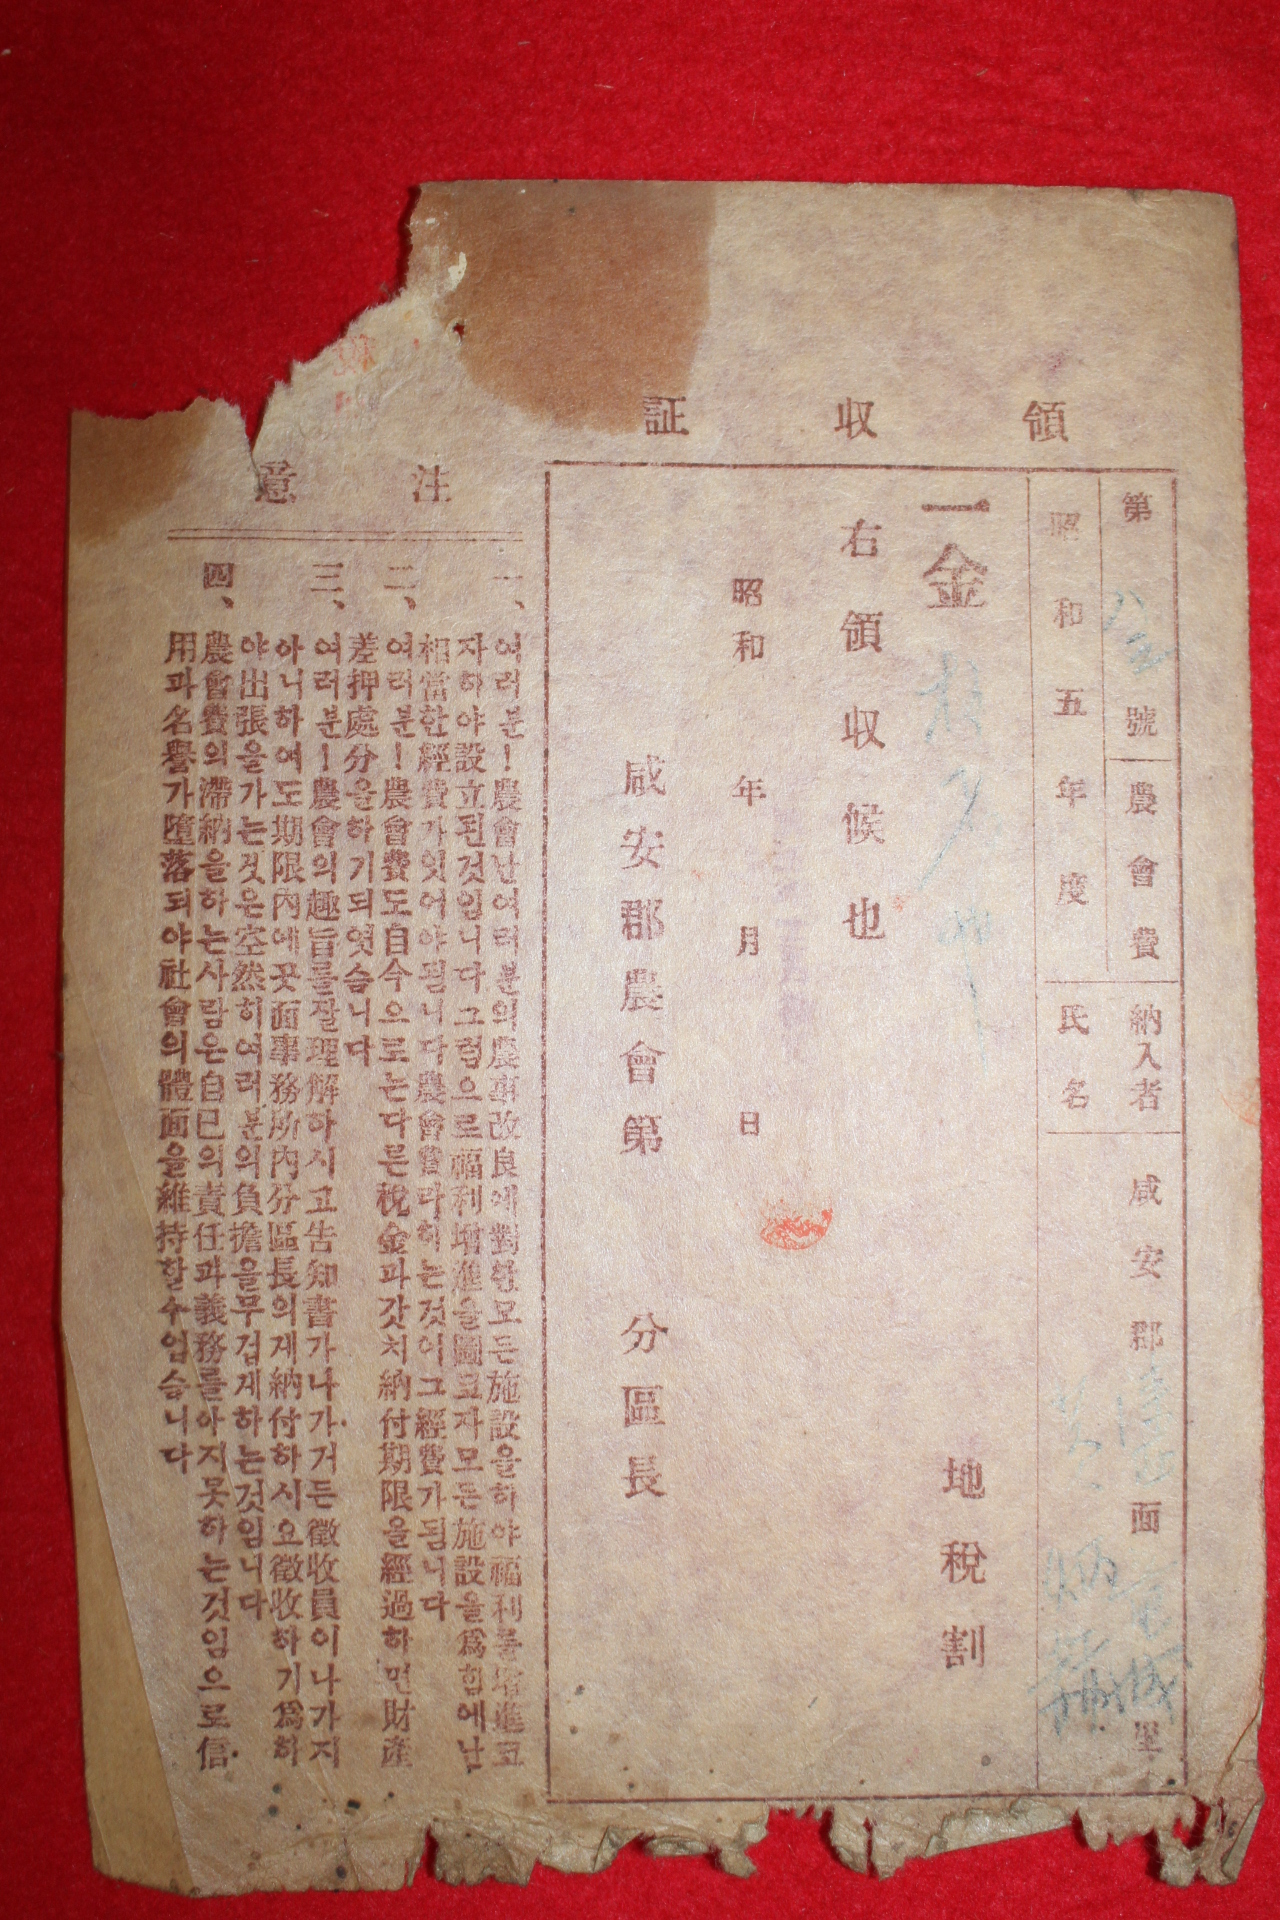 領收証
第 號
農會費
昭和五年度
納入者
氏名
咸安郡 面 里
一金
地稅割
右領收候也
昭和 年 月 日
咸安郡農會第 分區長
注意
一、여러분!農會난여러분의農事改良에對한모든施設을하야福利를增進코
자하야設立된것임니다그럼으로福利增進을圖코자모든施設을爲함에난
相當한經費가잇어야됨니다農會費라하는것이그經費가됨니다
二、여러분!農會費도自今으로는다른稅金과갓치納付期限을經過하면財產
差押處分을하기되엿슴니다
三、여러분!農會의趣旨를잘理解하시고告知書가나가거든徵收員이나가지
아니하여도期限內에곳面事務所內分區長의게納付하시오徵收하기爲하
야出張을가는것은空然히여러분의負擔을무겁게하는것임니다
四、農會費의滯納을하는사람은自己의責任과義務를아지못하는것임으로信
用과名譽가墮落되야社會의體面을維持할수업슴니다